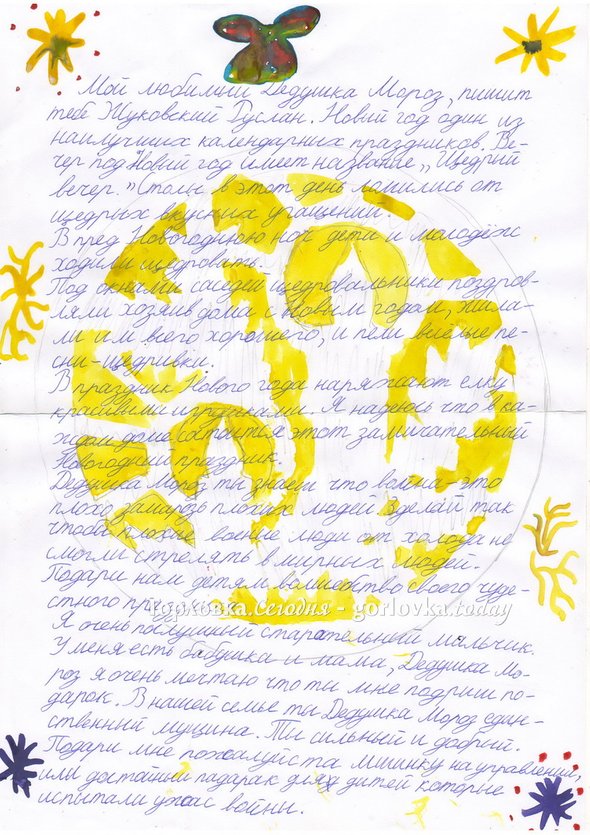 Мой любимий Дедушка Мороз, пишит
тебе Жуковский Руслан. Новий год один из
наилучших календарных праздников. Ве-
чер под Новый год имиет название „Щедрий
вечер." Столы в этот день ломились от
щедрых вкусных угащений.
В пред Новогоднюю ноч дети и молодёж
ходили щедровать.
Под окнами соседей щедровальники поздров-
ляли хозяив дома с Новым годом, жила-
ли им всего хорошего, и пели виселые пе-
сни-щедривки.
В праздник Нового года наряжают елку
красивыми игрушками. Я надеюсь что в ка-
ждом доме состоится этот замичательний
Новогодний праздник.
Дедушка Мороз ты знаеш что война-это
плохо заморозь плохих людей зделай так
чтобы плохие военые люди от холода не
смогли стрелять в мирных людей.
Подари нам детям волшебство своего чуде-
стного
Горловка.Сегодня - gorlovka.today
Я очень послушный старательний мальчик.
У меня есть бабушка и мама, Дедушка Мо-
роз я очень мечтаю что ты мне подариш по-
дарок. В нашей семье ты Дедушка Мороз един-
ственный мущина. Ты сильный и добрий.
Подари мне пожалуйста мшинку на управлении,
или достойний падарак для дитей которые
испытали ужас войны.